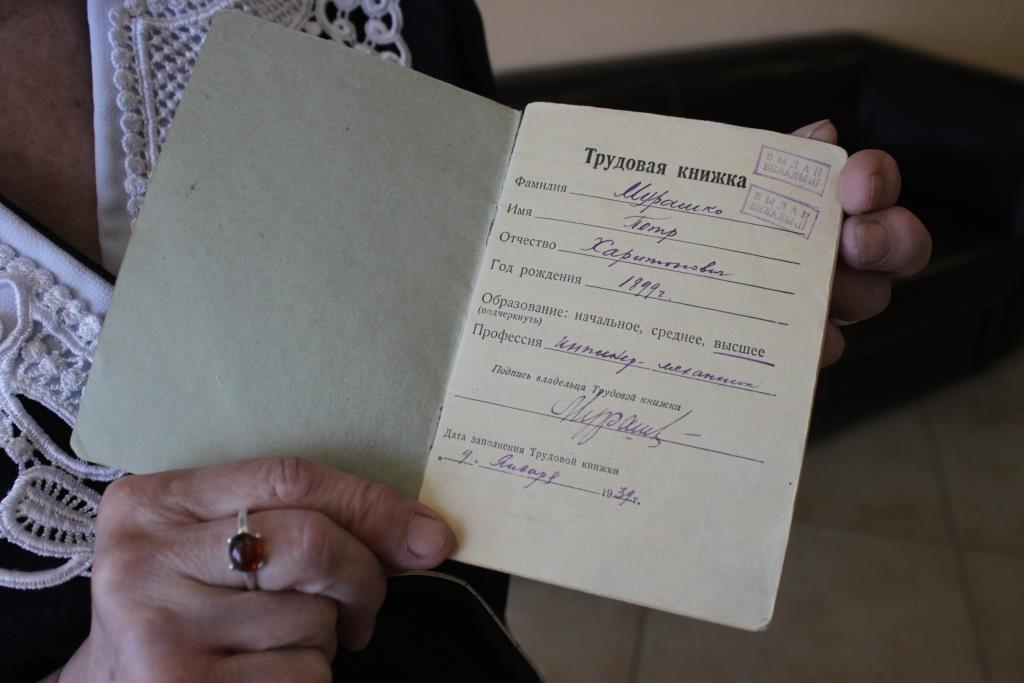 Трудовая книжка
ВЫДАН
ВКЛАДЫШ
ВЫДАН
ВКЛАДЫШ
Фамилия Мурашко
Имя Петр
Отчество Харитонович
Год рождения 1899г.
Образование: начальное, среднее, высшее
(подчеркнуть)
Профессия инженер-механик
Подпись владельца Трудовой книжки
Дата заполнения Трудовой книжки
"9" Января 1939 г.